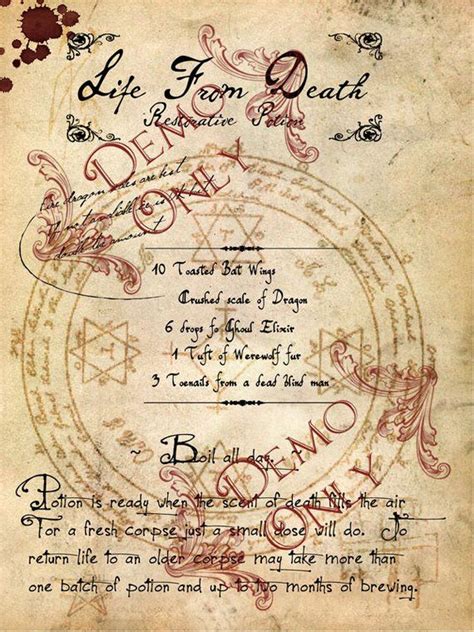 Life From Death
Restorative Potion
Demo
Only
10 Toasted Bat Wings
Crushed scale of Dragon
6 drops fo Ghoul Elixir
1 Tuft of Werewolf fur
3 Toenails from a dead blind man
~ Boil all day. ~
Demo
Only
Potion is ready when the scent of death fills the air
For a fresh corpse just a small dose will do. To
return life to an older corpse may take more than
one batch of potion and up to two months of brewing.